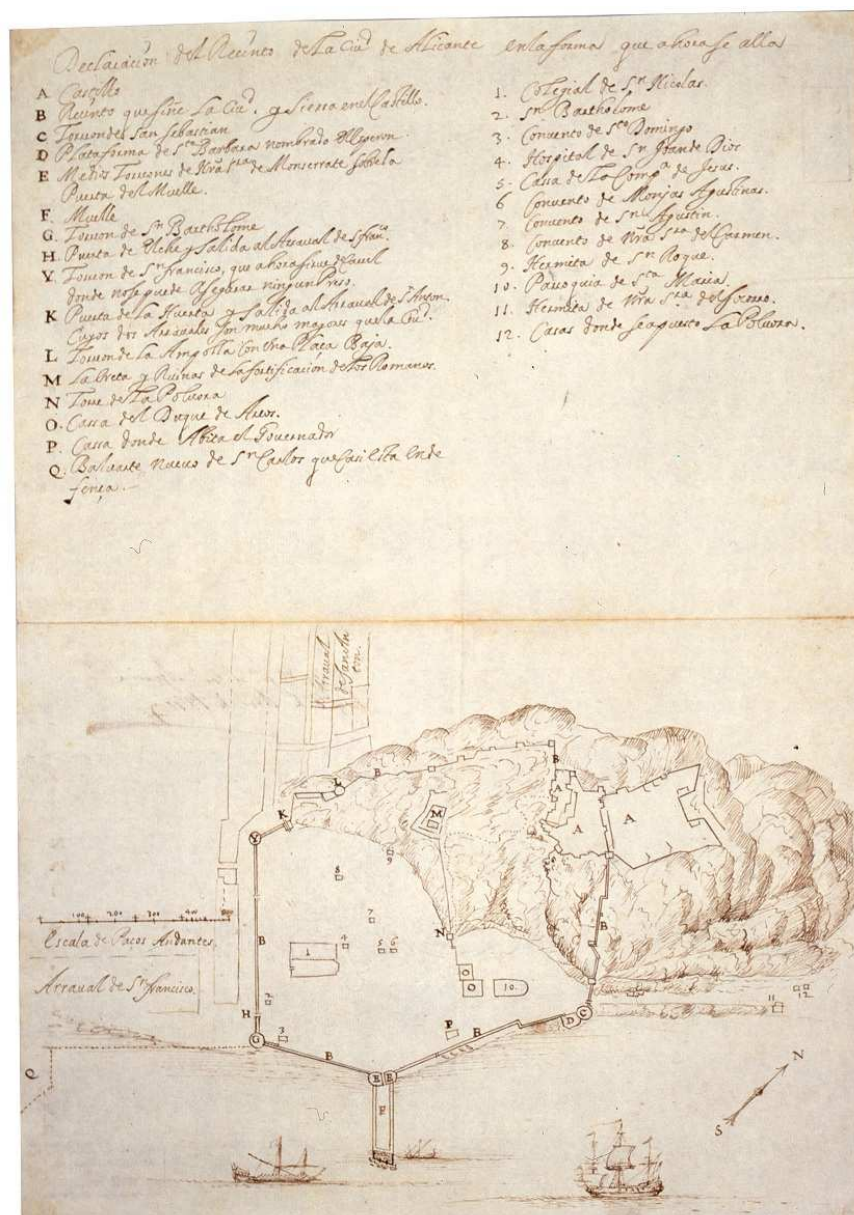 Declaracion del Recinto de La Ciud. de Alicante en la forma que ahora se alla
A Castillo
B Recinto que siñe La Ciud. y sierra en el Castillo.
C Torreon de San Sebastian
D Plataforma de Sta Barbara nombrado el Esperon
E Medios Torreones de Nra Sra de Monserrate sobre la
Puerta del Muelle.
F. Muelle
G. Torreon de Sn Bartholome
H. Puerta de Elche y Salida al Arraval de S franco
Y Torreon de Sn francisco, que ahora sirve de Carcel
donde no se puede Asegurar ningun Preso.
K Puerta de la Huerta y Salida al Arraval de S Anton
Cuyos dos Arravales son mucho mayores que la Ciud.
L Torreon de La Ampolla con una Plaça Baja.
M La Breta y Ruinas de la fortificacion de Los Romanos.
N Torre de La Polvora
O. Cassa del Duque de Arcos.
P. Cassa donde Abita el Governador
Q. Baluarte nuevo de Sn Carlos que Casi Esta en de
fensa.
1. Colegial de Sn Nicolas.
2. Sn Bartholome
3. Convento de Sto Domingo
4. Hospital de Sn Juan de Dios
5. Cassa de La Compa de Jesus.
6 Convento de Monjas Agustinas.
7 Convento de Sn Agustin.
8 Convento de Nra Sra del Carmen.
9. Hermita de Sn Roque.
10. Parroquia de Sta Maria
11. Hermita de Nra Sra del Socorro.
12. Casas donde se a puesto La Polvora.
Arraval
de San An
ton.
B
L
B
K
M
A
A
A
Y
9
8
100 200 300 400
7
B
B
Escala de Pacos Andantes.
4
5 6
N
1
O
O
10
Arraval de Sn francisco.
2
11
12
H
P
B
D
C
G
3
B
E E
Q
F
N
S